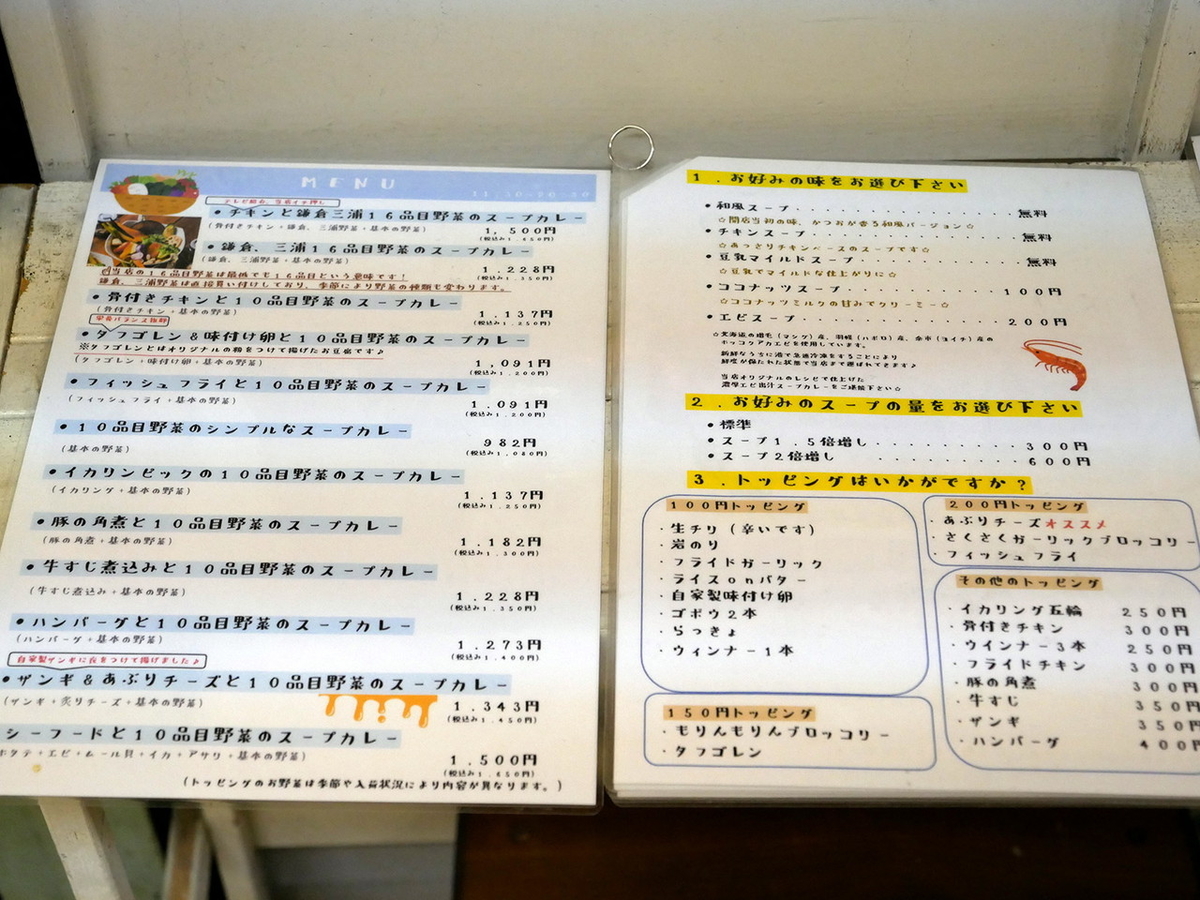 MENU
11:30-20:30
テレビ紹介、当店イチ押し
●チキンと鎌倉三浦16品目野菜のスープカレー
(骨付きチキン+鎌倉、三浦野菜+基本の野菜)
1,500円
(税込み1.650円)
●鎌倉、三浦16品目野菜のスープカレー
(鎌倉、三浦野菜+基本の野菜)
1.228円
(税込み1.350円)
当店の16品目野菜は最低でも16品目という意味です!
鎌倉、三浦野菜は直接買い付けしており、季節により野菜の種類も変わります。
●骨付きチキンと10品目野菜のスープカレー
(骨付きチキン+基本の野菜)
1.137円
(税込み1.250円)
栄養バランス抜群
●タフゴレン&味付け卵と10品目野菜のスープカレー
※タフゴレンとはオリジナルの粉をつけて揚げたお豆腐です♪
(タフゴレン+味付け卵+基本の野菜)
1,091円
(税込み1.200円)
●フィッシュフライと10品目野菜のスープカレー
(フィッシュフライ+基本の野菜)
1.091円
(税込み1.200円)
●10品目野菜のシンプルなスープカレー
(基本の野菜)
982円
(税込み1.080円)
●イカリンピックの10品目野菜のスープカレー
(イカリング+基本の野菜)
1.137円
(税込み1.250円)
●豚の角煮と10品目野菜のスープカレー
(豚の角煮+基本の野菜)
1.182円
(税込み1.300円)
●牛すじ煮込みと10品目野菜のスープカレー
(牛すじ煮込み+基本の野菜)
1.228円
(税込み1.350円)
●ハンバーグと10品目野菜のスープカレー
(ハンバーグ+基本の野菜)
1.273円
(税込み1.400円)
自家製ザンギに衣をつけて揚げました♪
●ザンギ&あぶりチーズと10品目野菜のスープカレー
(ザンギ+炙りチーズ+基本の野菜)
1.343円
(税込み1.450円)
シーフードと10品目野菜のスープカレー
ホタテ+エビ+ムール貝+イカ+アサリ+基本の野菜)
1.500円
(税込み1.650円)
(トッピングのお野菜は季節や入荷状況により内容が異なります。)
1.お好みの味をお選び下さい
●和風スープ・・・・・・・・・・・・・・無料
☆開店当初の味、かつおが香る和風バージョン☆
●チキンスープ・・・・・・・・・・・・・無料
☆あっさりチキンベースのスープです☆
●豆乳マイルドスープ・・・・・・・・・・無料
☆豆乳でマイルドな仕上がりに☆
●ココナッツスープ・・・・・・・・・・100円
☆ココナッツミルクの甘みでクリーミー☆
●エビスープ・・・・・・・・・・・・・200円
☆北海道の増毛(マシケ)産、羽幌(ハボロ)産、余市(ヨイチ)産の
ホッコクアカエビを使用しています。
新鮮なうちに港で急速冷凍をすることにより
鮮度が保たれた状態で当店まで運ばれてきます♪
当店オリジナルのレシピで仕上げた
濃厚エビ出汁スープカレーをご堪能下さい☆
2.お好みのスープの量をお選び下さい
●標準
●スープ1.5倍増し・・・・・・・・・300円
●スープ2倍増し・・・・・・・・・・・600円
3.トッピングはいかがですか?
100円トッピング
・生チリ(辛いです)
・岩のり
・フライドガーリック
・ライスonバター
・自家製味付け卵
・ゴボウ2本
・らっきょ
・ウィンナー1本
150円トッピング
・もりんもりんブロッコリー
・タフゴレン
200円トッピング
・あぶりチーズオススメ
・さくさくガーリックブロッコリー
・フィッシュフライ
その他のトッピング
・イカリング五輪 250円
・骨付きチキン 300円
・ウインナー3本 250円
・フライドチキン 300円
・豚の角煮 300円
・牛すじ 350円
・ザンギ 350円
・ハンバーグ 400円